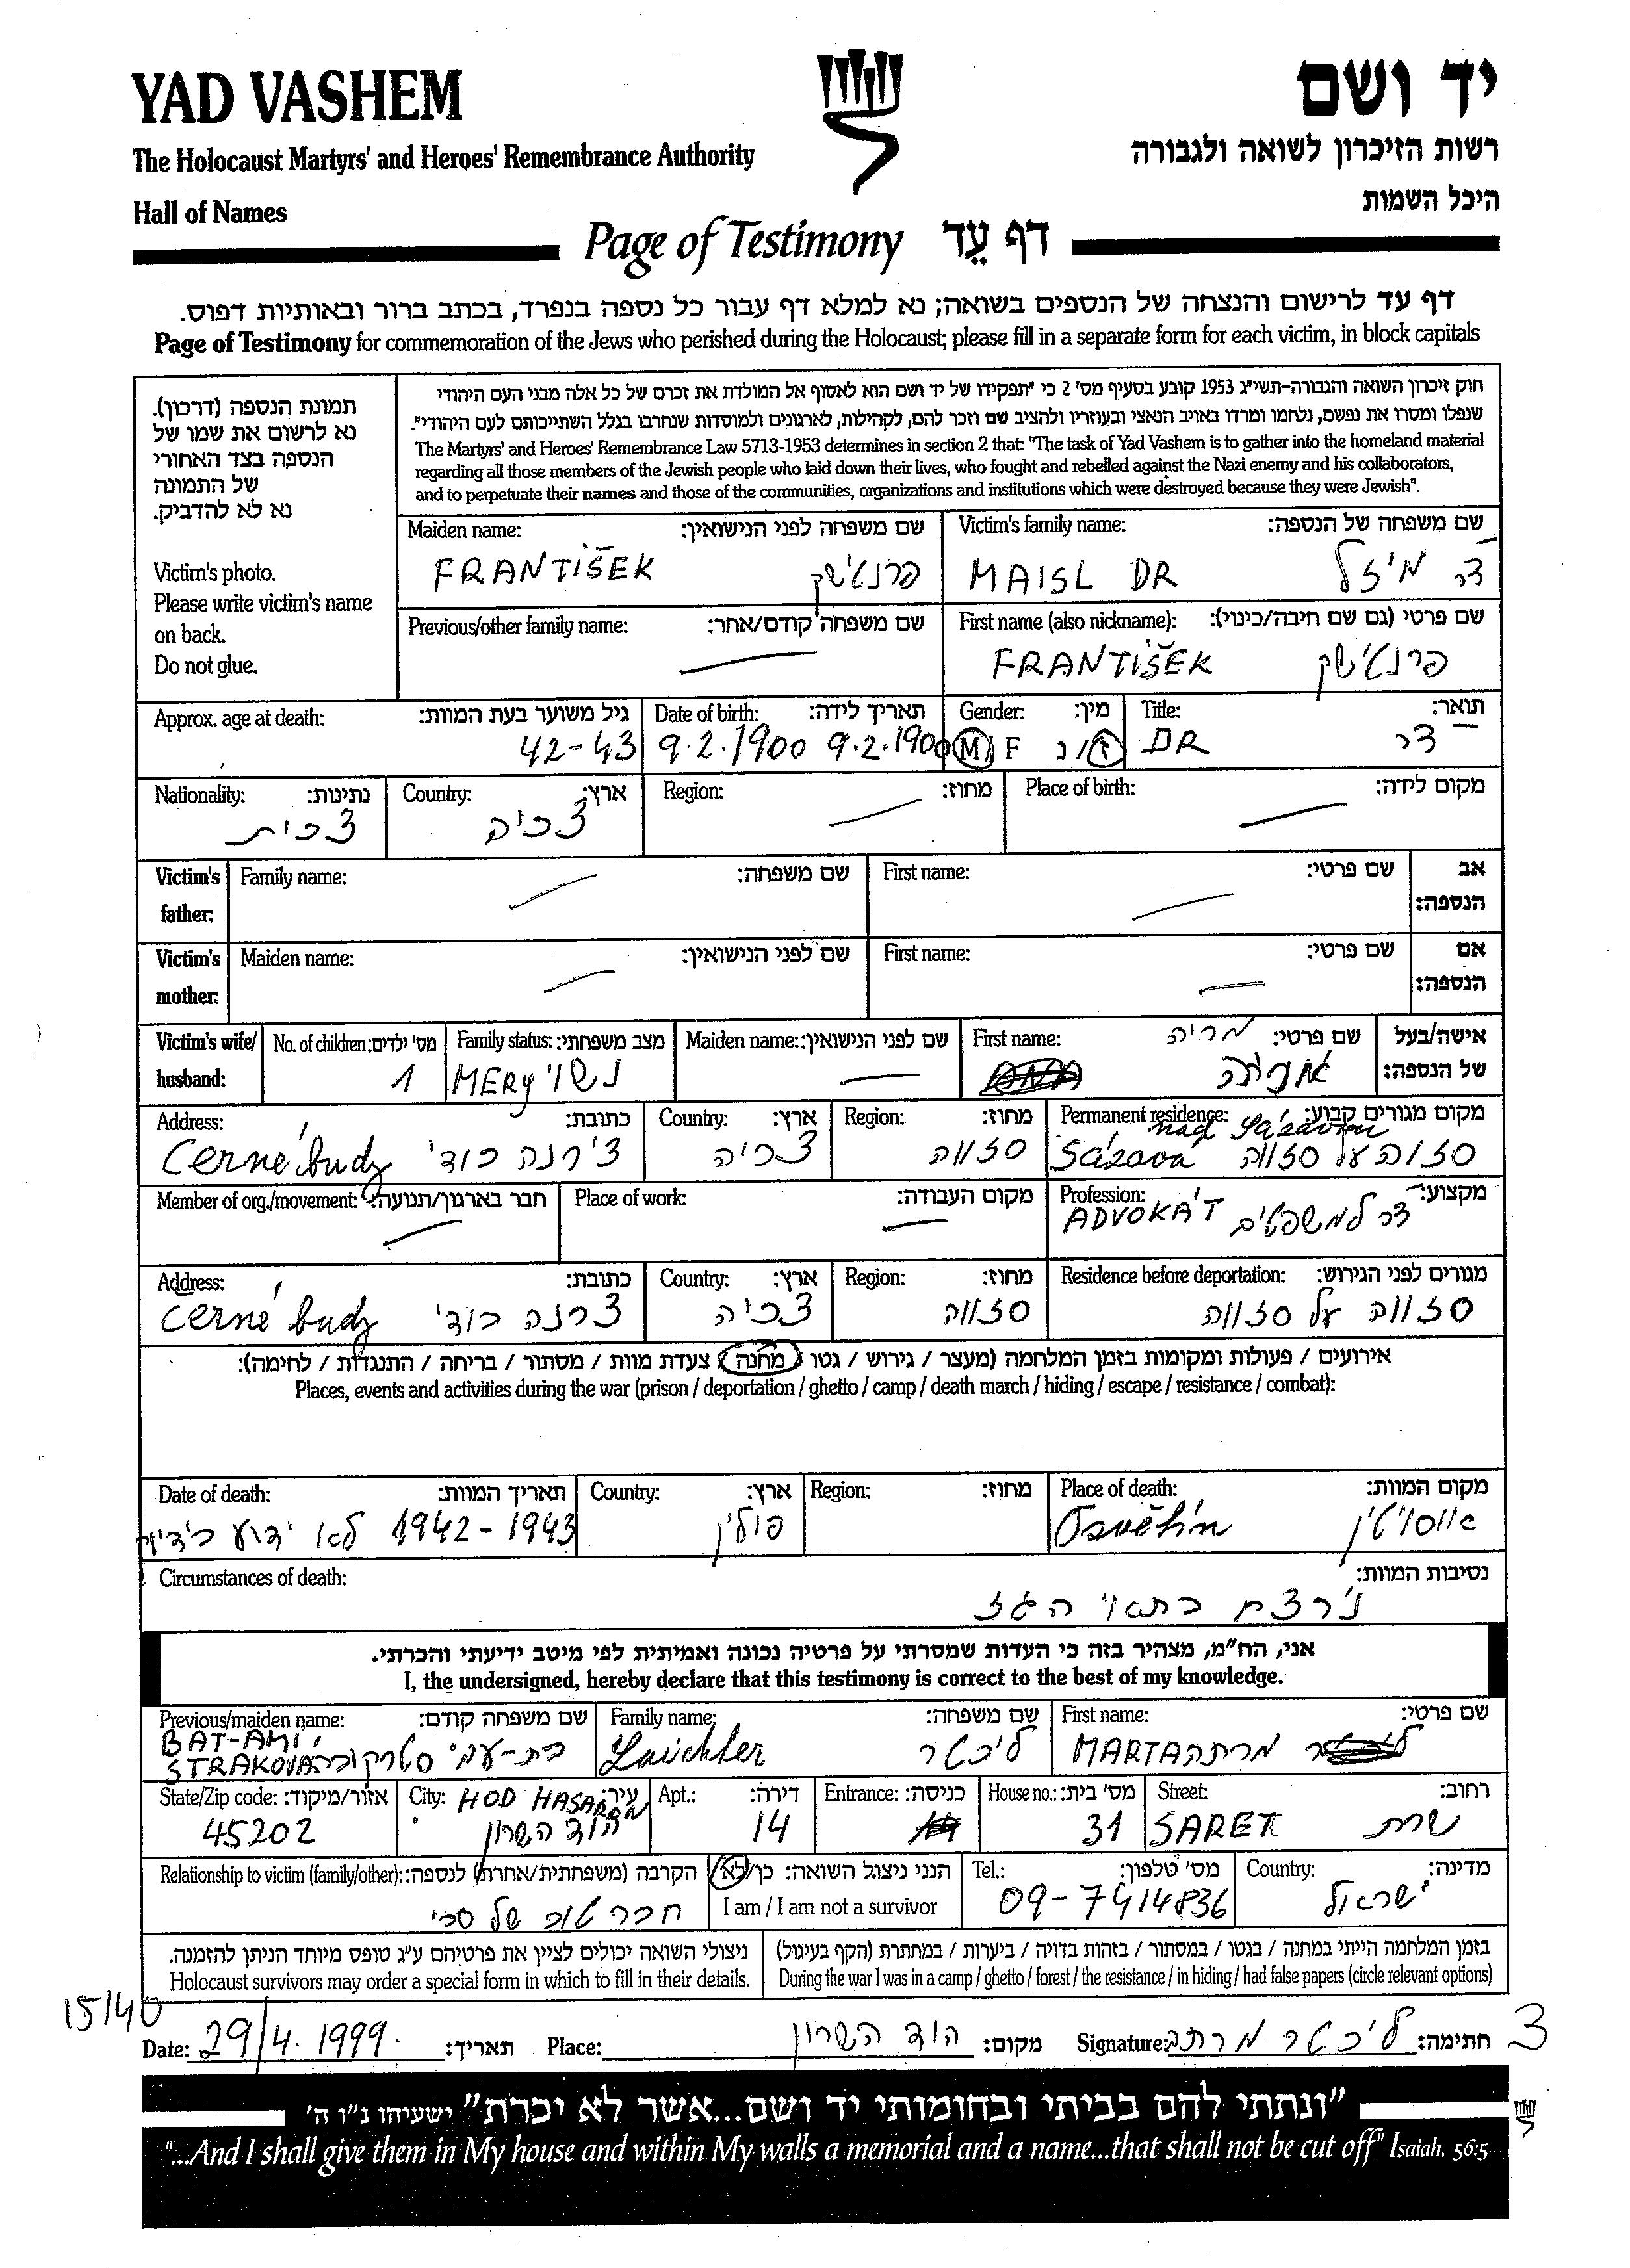 YAD VASHEM יד ושם
The Holocaust Martyrs' and Heroes' Remembrance Authority רשות הזיכרון לשואה ולגבורה
Hall of Names היכל השמות
Page of Testimony דף עֵד
דף עד לרישום והנצחה של הנספים בשואה; נא למלא דף עבור כל נספה בנפרד, בכתב ברור ובאותיות דפוס.
Page of Testimony for commemoration of the Jews who perished during the Holocaust; please fill in a separate form for each victim, in block capitals
תמונת הנספה (דרכון).
נא לרשום את שמו של
הנספה בצד האחורי
של התמונה
נא לא להדביק.
Victim's photo.
Please write victim's name
on back.
Do not glue.
חוק זיכרון השואה והגבורה-תשי"ג 1953 קובע בסעיף מס' 2 כי "תפקידו של יד ושם הוא לאסוף אל המולדת את זכרם של כל אלה מבני העם היהודי
שנפלו ומסרו את נפשם, נלחמו ומרדו באויב הנאצי ובעוזריו ולהציב שם וזכר להם, לקהילות, לארגונים ולמוסדות שנחרבו בגלל השתייכותם לעם היהודי".
The Martyrs' and Heroes' Remembrance Law 5713-1953 determines in section 2 that: "The task of Yad Vashem is to gather into the homeland material
regarding all those members of the Jewish people who laid down their lives, who fought and rebelled against the Nazi enemy and his collaborators,
and to perpetuate their names and those of the communities, organizations and institutions which were destroyed because they were Jewish".
Maiden name: שם משפחה לפני הנישואין: Victim's family name: שם משפחה של הנספה:
FRANTIŠEK פרנטישק MAISL DR דר מיזל
Previous/other family name: שם משפחה קודם/אחר: First name (also nickname): שם פרטי (גם שם חיבה/כינוי):
FRANTIŠEK פרנטישק
Approx. age at death: גיל משוער בעת המוות: Date of birth: תאריך לידה: Gender: מין: Title: תואר:
42-43 9.2.1900 9.2.1900 M/F ז/נ DR דר
Nationality: נתינות: Country: ארץ: Region: מחוז: Place of birth: מקום לידה:
צ'כית צ'כיה
Victim's father: Family name: שם משפחה: First name: שם פרטי: אב הנספה:
Victim's mother: Maiden name: שם לפני הנישואין: First name: שם פרטי: אם הנספה:
Victim's wife/ husband: No. of children: מס' ילדים: Family status: מצב משפחתי: Maiden name: שם לפני הנישואין: First name: שם פרטי: מריה אישה/בעל של הנספה:
1 MERY נשוי
Address: כתובת: Country: ארץ: Region: מחוז: Permanent residence: מקום מגורים קבוע:
Cerné budy צ'רנה בודי צ'כיה סזווה Sázava nad Sázavou סזווה על סזווה
Member of org./movement: חבר בארגון/תנועה: Place of work: מקום העבודה: Profession: מקצוע:
ADVOKÁT דר למשפטים
Address: כתובת: Country: ארץ: Region: מחוז: Residence before deportation: מגורים לפני הגירוש:
Cerné budy צרנה בודי צ'כיה סזווה סזווה על סזווה
אירועים / פעולות ומקומות בזמן המלחמה (מעצר / גירוש / גטו / מחנה / צעדת מוות / מסתור / בריחה / התנגדות / לחימה):
Places, events and activities during the war (prison / deportation / ghetto / camp / death march / hiding / escape / resistance / combat):
Date of death: תאריך המוות: Country: ארץ: Region: מחוז: Place of death: מקום המוות:
1942-1943 לא ידוע בדיוק פולין Osvětín אוסויטין
Circumstances of death: נסיבות המוות:
נרצח בתאי הגז
אני, הח"מ, מצהיר בזה כי העדות שמסרתי על פרטיה נכונה ואמיתית לפי מיטב ידיעתי והכרתי.
I, the undersigned, hereby declare that this testimony is correct to the best of my knowledge.
Previous/maiden name: שם משפחה קודם: Family name: שם משפחה: First name: שם פרטי:
BAT-AMI STRAKOVA בת-עמי סטרקובה Laichter ליכטר MARTA מרתה
State/Zip code: אזור/מיקוד: City: עיר: Apt.: דירה: Entrance: כניסה: House no.: מס' בית: Street: רחוב:
45202 HOD HASARON הוד השרון 14 31 SARET שרת
Relationship to victim (family/other): הקרבה (משפחתית/אחרת) לנספה: הנני ניצול השואה: כן/לא I am / I am not a survivor Tel.: מס' טלפון: Country: מדינה:
חבר טוב של סבי 09-7414836 ישראל
ניצולי השואה יכולים לציין את פרטיהם ע"ג טופס מיוחד הניתן להזמנה. בזמן המלחמה הייתי במחנה / בגטו / במסתור / בזהות בדויה / ביערות / במחתרת (הקף בעיגול)
Holocaust survivors may order a special form in which to fill in their details. During the war I was in a camp / ghetto / forest / the resistance / in hiding / had false papers (circle relevant options)
15/40
Date: 29/4.1999. תאריך: Place: הוד השרון מקום: Signature: ליכטר מרתה חתימה: 3
"ונתתי להם בביתי ובחומותי יד ושם...אשר לא יכרת" ישעיהו נ"ו ה'
"...And I shall give them in My house and within My walls a memorial and a name...that shall not be cut off" Isaiah. 56:5